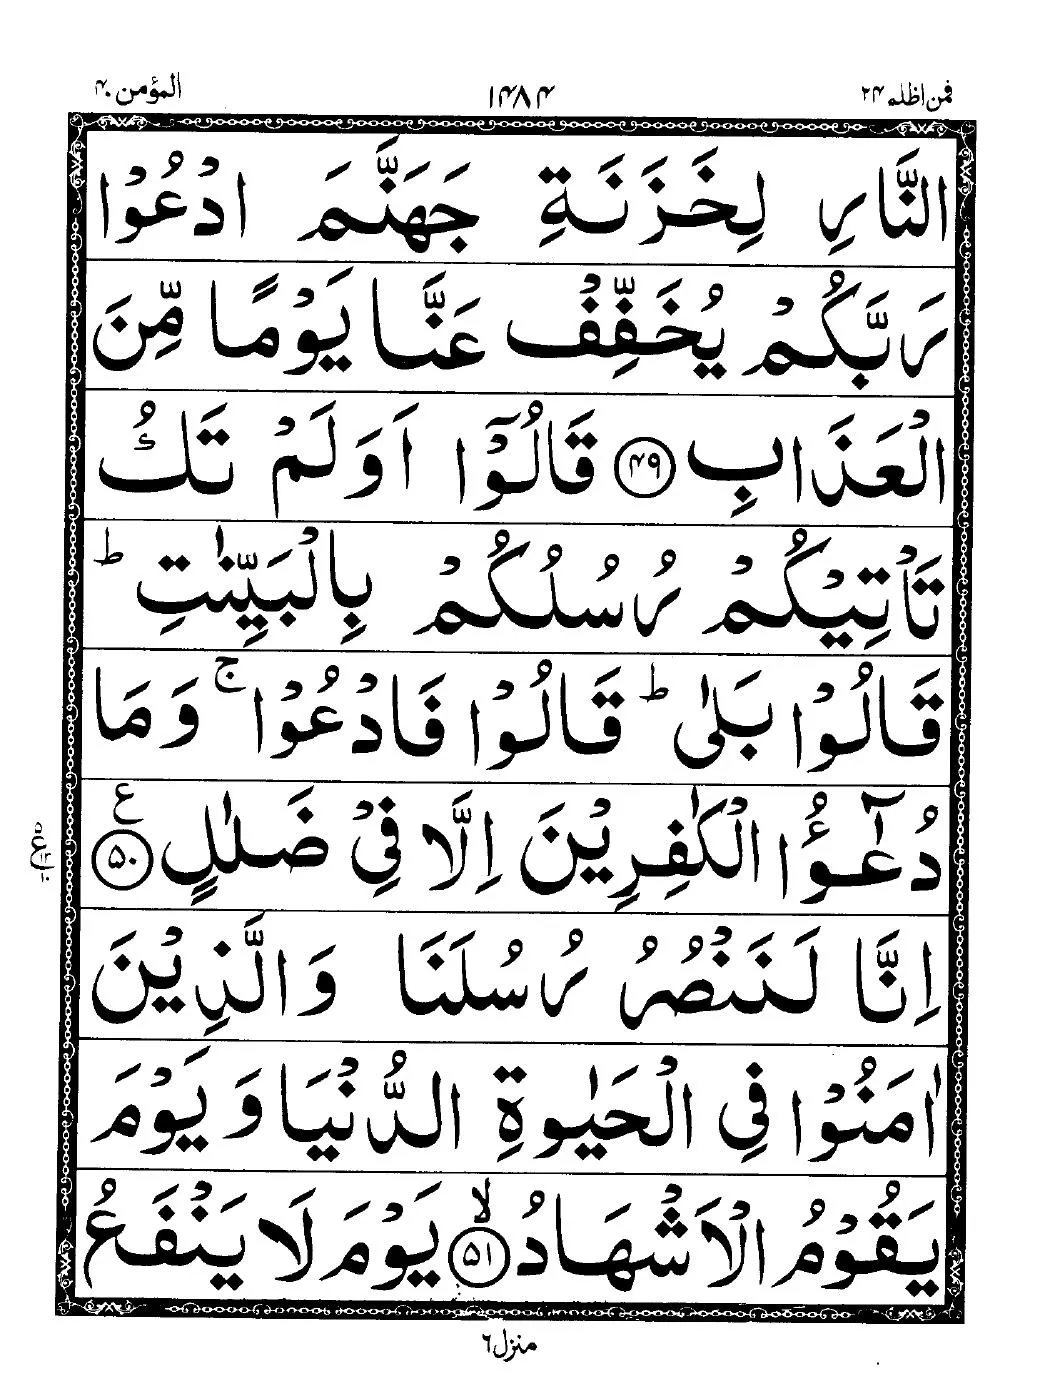 المؤمن ۴۰ ۱۴۸۴ فمن اظلم ۲۴
النَّارِ لِخَزَنَةِ جَهَنَّمَ ادْعُوْا
رَبَّكُمْ يُخَفِّفْ عَنَّا يَوْمًا مِّنَ
الْعَذَابِ ﴿۴۹﴾ قَالُوْۤا اَوَلَمْ تَكُ
تَاْتِيْكُمْ رُسُلُكُمْ بِالْبَيِّنٰتِ ؕ
قَالُوْا بَلٰى ؕ قَالُوْا فَادْعُوْا ۚ وَمَا
دُعٰٓؤُا الْكٰفِرِيْنَ اِلَّا فِيْ ضَلٰلٍ ﴿۵۰﴾ ع
اِنَّا لَنَنْصُرُ رُسُلَنَا وَالَّذِيْنَ
اٰمَنُوْا فِي الْحَيٰوةِ الدُّنْيَا وَيَوْمَ
يَقُوْمُ الْاَشْهَادُ ﴿۵۱﴾ ۙ يَوْمَ لَا يَنْفَعُ
منزل ۶